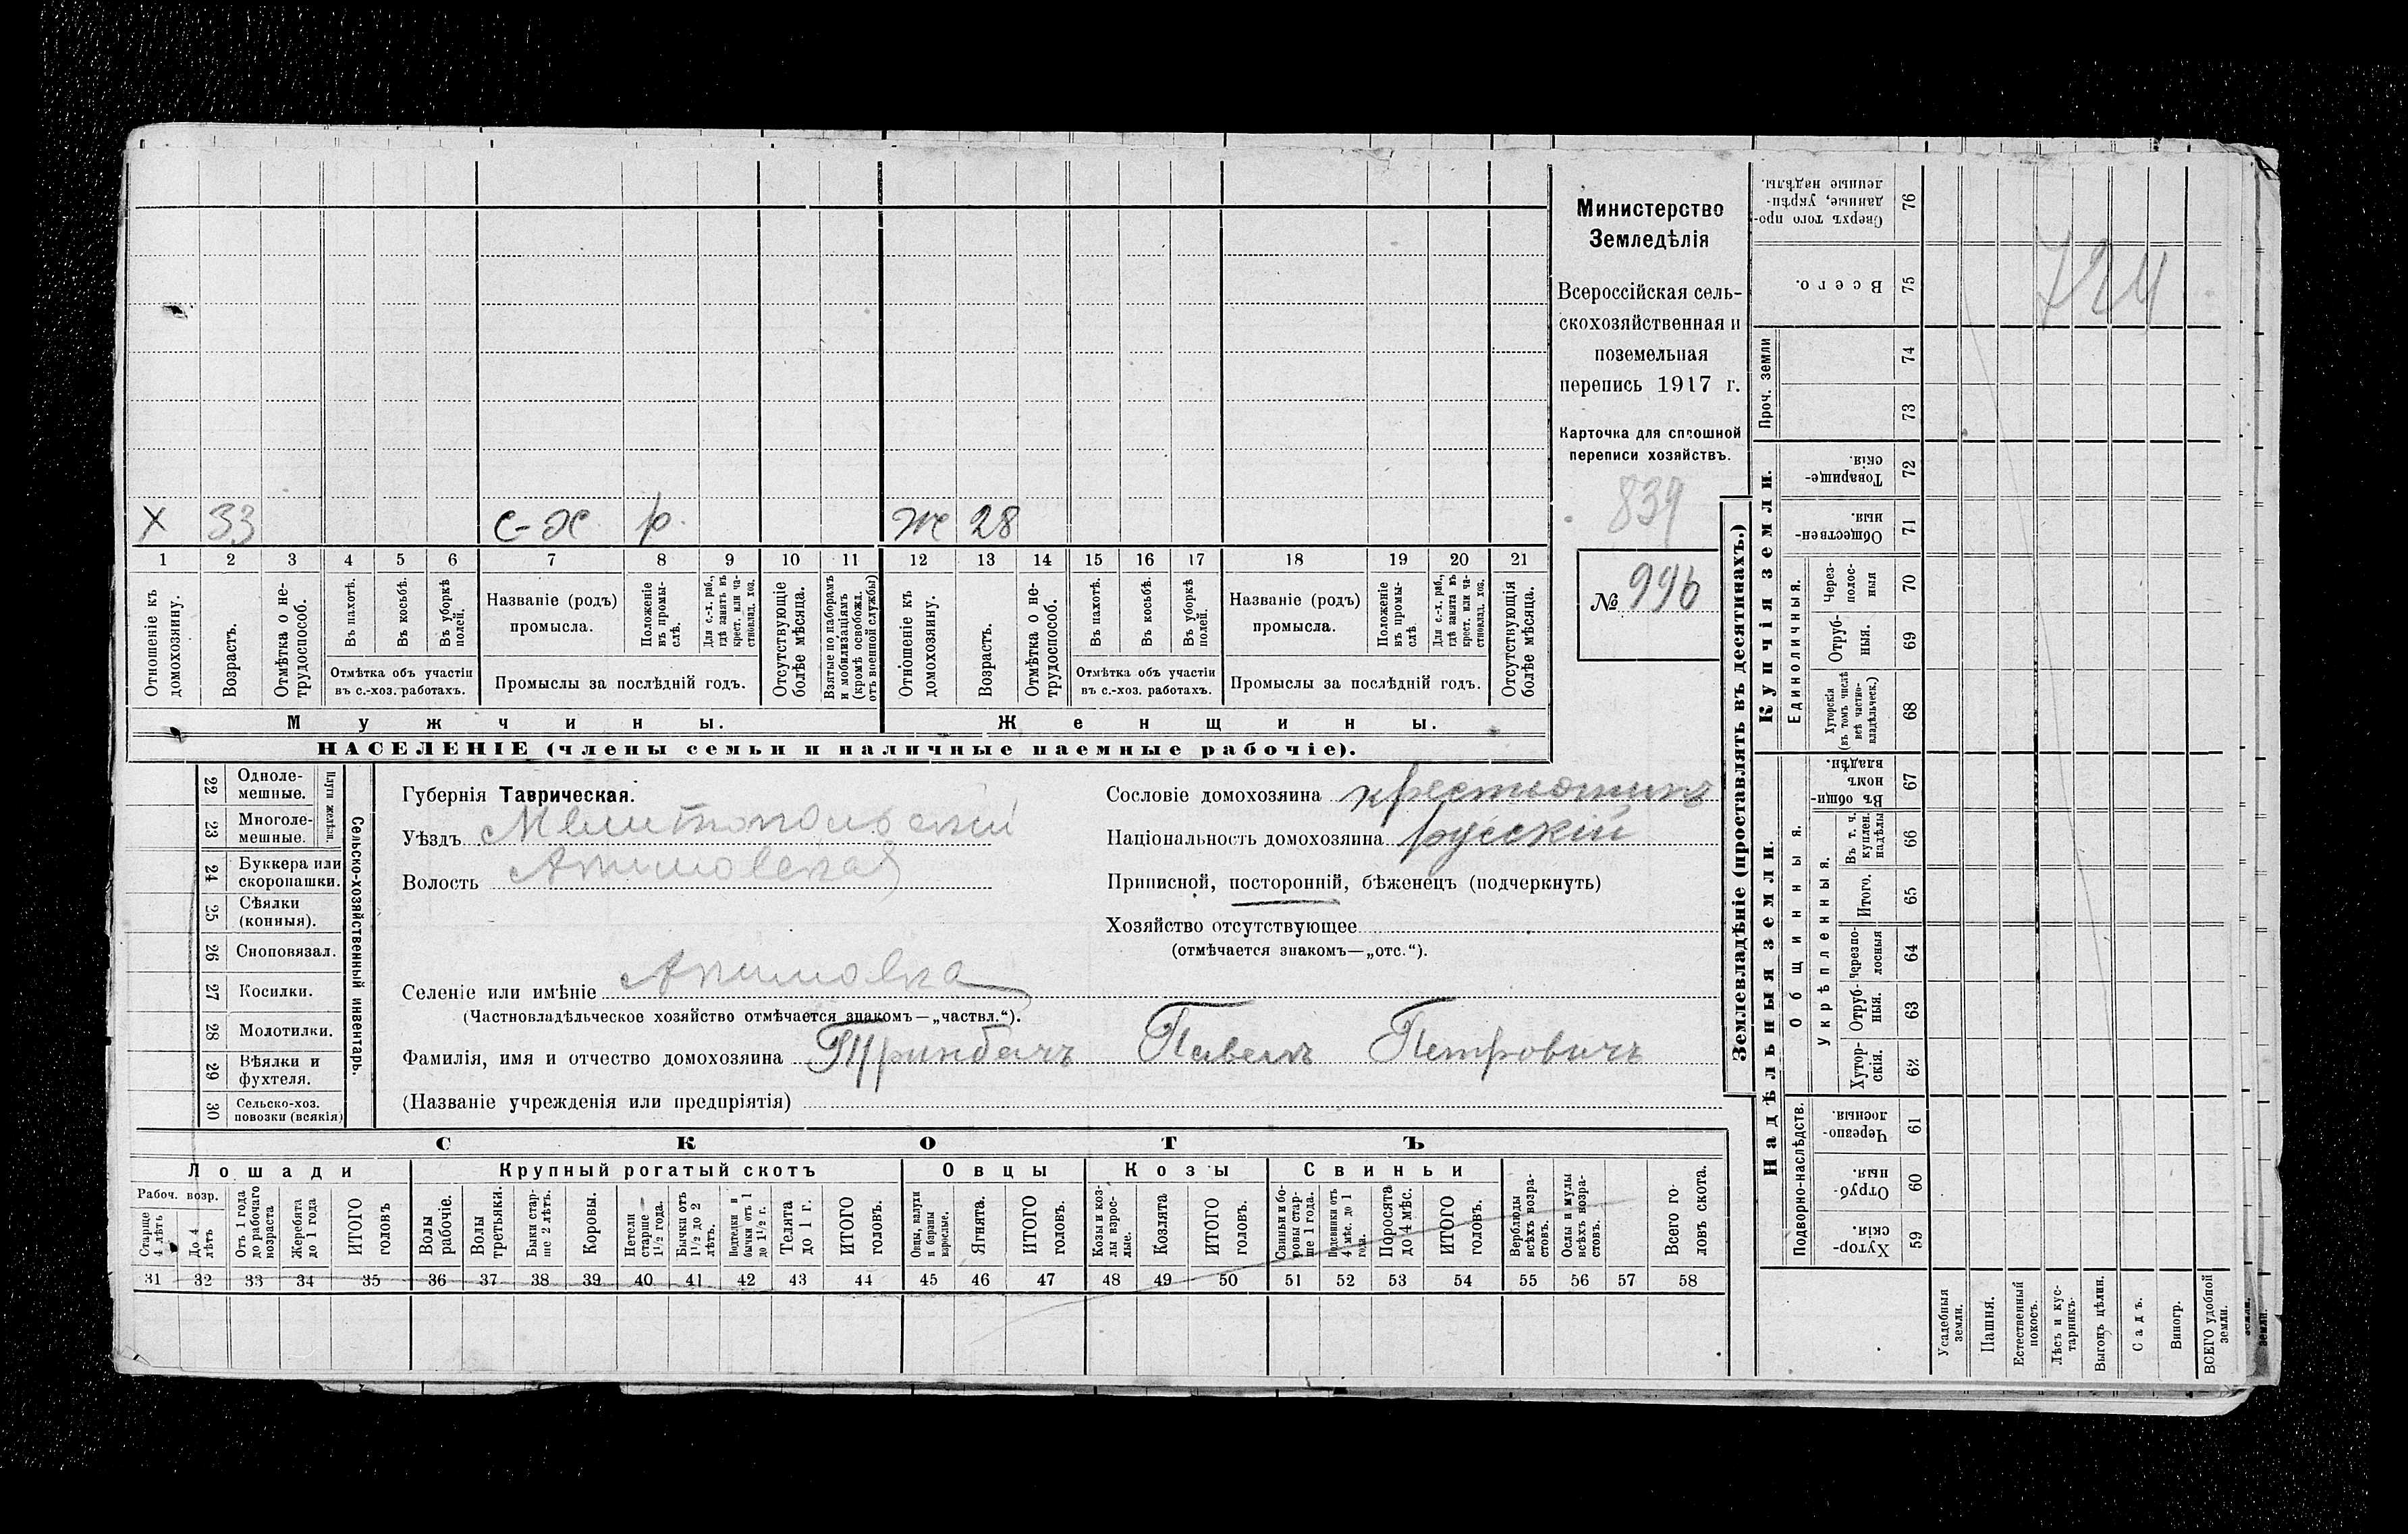 Министерство
Земледѣлія
Всероссійская сель-
скохозяйственная и
поземельная
перепись 1917 г.
Карточка для сплошной
переписи хозяйствъ.
839
№ 996
Х 33 с-х р. ж 28
1 2 3 4 5 6 7 8 9 10 11 12 13 14 15 16 17 18 19 20 21
Отношеніе къ домохозяину.
Возрастъ.
Отмѣтка о не-трудоспособ.
Въ пахотѣ.
Въ косьбѣ.
Въ уборкѣ полей.
Отмѣтка объ участіи
въ с.-хоз. работахъ.
Названіе (родъ)
промысла.
Положеніе въ промы-слѣ.
Для с.-х. раб., гдѣ занятъ въ крест. или ча-стновлад. хоз.
Промыслы за послѣдній годъ.
Отсутствующіе болѣе мѣсяца.
Взятые по наборамъ и мобилизаціямъ (кромѣ освобожд. отъ военной службы)
Отношеніе къ домохозяину.
Возрастъ.
Отмѣтка о не-трудоспособ.
Въ пахотѣ.
Въ косьбѣ.
Въ уборкѣ полей.
Отмѣтка объ участіи
въ с.-хоз. работахъ.
Названіе (родъ)
промысла.
Положеніе въ промы-слѣ
Для с.-х. раб., гдѣ занята въ крест. или ча-стновлад. хоз.
Промыслы за послѣдній годъ.
Отсутствующія болѣе мѣсяца.
Мужчины.
Женщины.
НАСЕЛЕНІЕ (члены семьи и наличные наемные рабочіе).
22 Одноле-мешные.
23 Многоле-мешные.
24 Буккера или скоропашки.
25 Сѣялки (конныя).
26 Сноповязал.
27 Косилки.
28 Молотилки.
29 Вѣялки и фухтеля.
30 Сельско-хоз. повозки (всякія)
Сельско-хозяйственный инвентарь.
Губернія Таврическая.
Уѣздъ Мелитопольскій
Волость Акимовская
Селеніе или имѣніе Акимовка
(Частновладѣльческое хозяйство отмѣчается знакомъ—„частвл.“).
Фамилія, имя и отчество домохозяина Павелъ Петровичъ
(Названіе учрежденія или предпріятія)
Сословіе домохозяина крестьянинъ
Національность домохозяина русскій
Приписной, посторонній, бѣженецъ (подчеркнуть)
Хозяйство отсутствующее
(отмѣчается знакомъ—„отс.“).
СКОТЪ
Лошади
Крупный рогатый скотъ
Овцы
Козы
Свиньи
Рабоч. возр.
Старше 4 лѣтъ
До 4 лѣтъ
Отъ 1 года до рабочаго возраста
Жеребята до 1 года
ИТОГО головъ
Волы рабочіе.
Волы третьяки.
Быки стар-ше 2 лѣтъ.
Коровы.
Нетели старше 1½ года.
Бычки отъ 1½ до 2 лѣтъ.
Подтелки и бычки отъ 1 до 1½ г.
Телята до 1 г.
ИТОГО головъ.
Овцы, валухи и бараны взрослые.
Ягнята.
ИТОГО головъ.
Козы и коз-лы взрос-лые.
Козлята
ИТОГО головъ.
Свиньи и бо-ровы стар-ше 1 года.
Подсвинки отъ 4 мѣс. до 1 года.
Поросята до 4 мѣс.
ИТОГО головъ.
Верблюды всѣхъ возра-стовъ.
Ослы и мулы всѣхъ возра-стовъ.
Всего го-ловъ скота.
31 32 33 34 35 36 37 38 39 40 41 42 43 44 45 46 47 48 49 50 51 52 53 54 55 56 57 58
Землевладѣніе (проставлять въ десятинахъ.)
Надѣльныя земли.
Купчія земли.
Проч. земли
Подворно-наслѣдств.
Общинныя.
Укрѣпленныя.
Единоличныя.
76 Сверхъ того про-данные, укрѣп-ленные надѣлы.
75 Всего.
74
73
72 Товарище-скія.
71 Обществен-ныя.
70 Через-полос-ныя
69 Отруб-ныя.
68 Хуторскія (въ томъ числѣ всѣ частно-владѣльческ.)
67 Въ общи-номъ владѣн.
66 Въ т. ч. куплен. надѣлы
65 Итого.
64 Черезпо-лосныя
63 Отруб-ныя.
62 Хутор-скія.
61 Черезпо-лосныя.
60 Отруб-ныя.
59 Хутор-скія.
Усадебныя земли.
Пашня.
Естественный покосъ.
Лѣсъ и кус-тарникъ.
Выгонъ цѣлин.
Садъ.
Виногр.
ВСЕГО удобной земли.
724